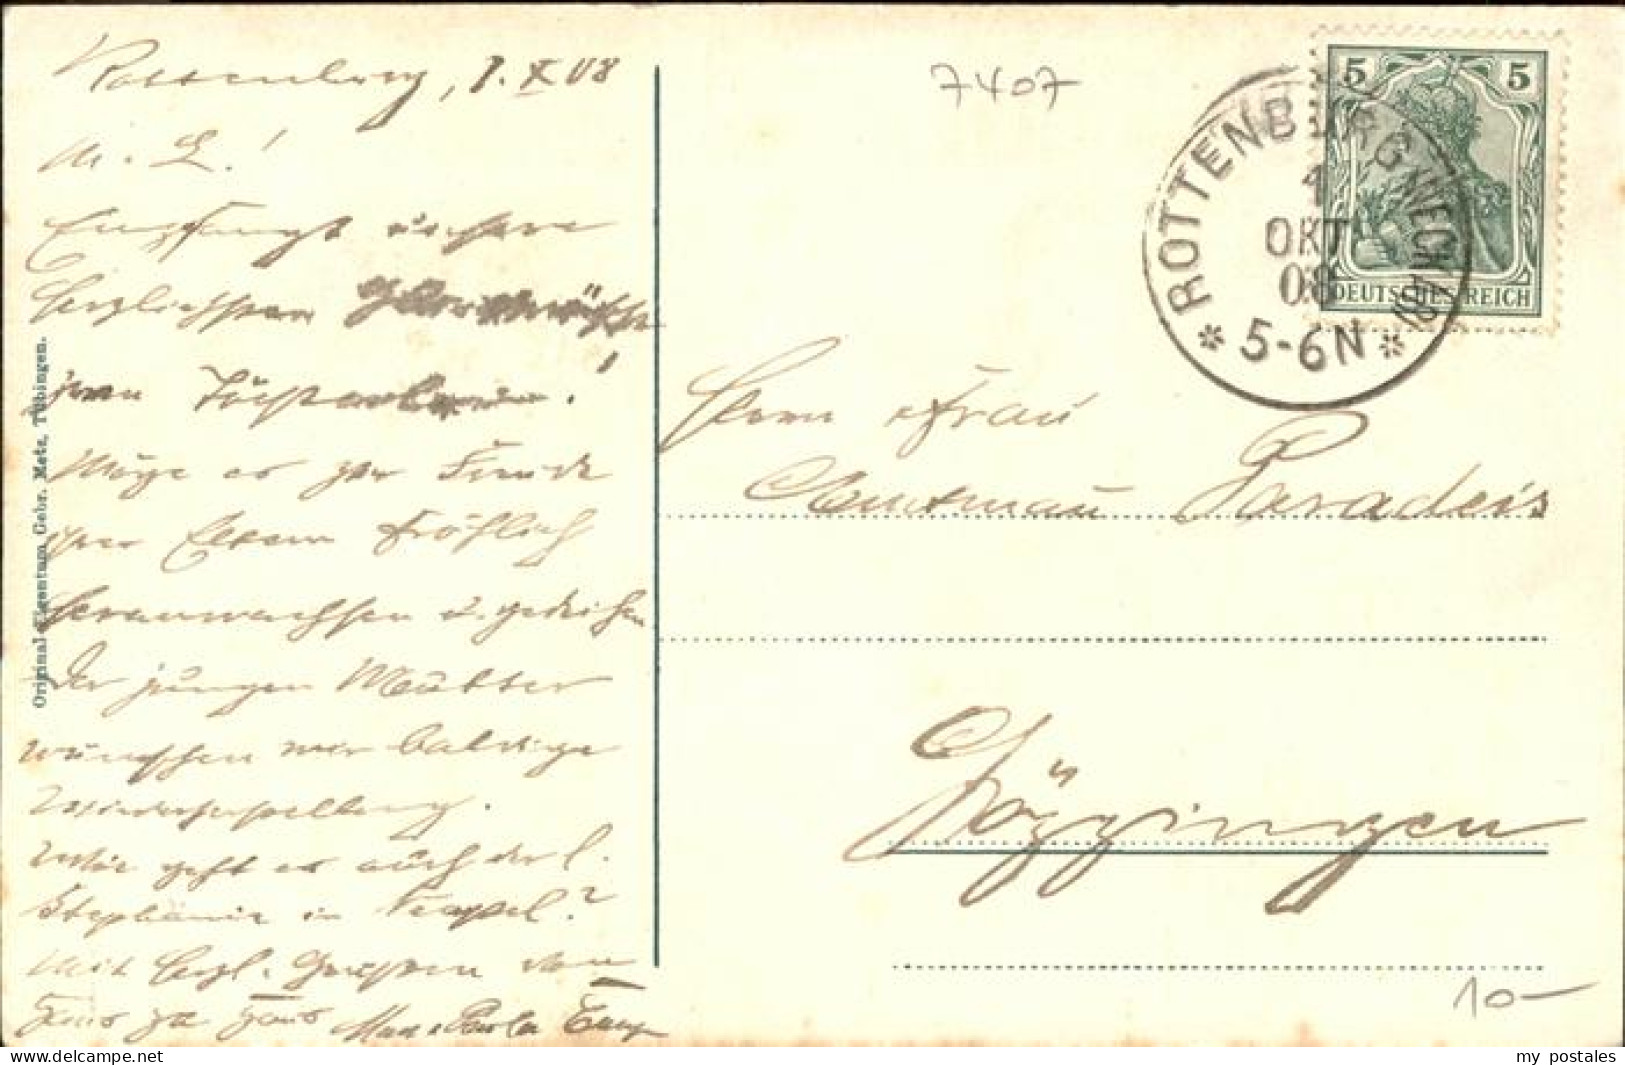 Rottenburg, 1. X 08
M. L.!
Empfangt unsere
herzlichsten Glückwünsche
zum Töchterlein!
Möge es zur Freude
ihrer Eltern fröhlich
heranwachsen u. gedeihen
Der jungen Mutter
wünschen wir baldige
Wiederherstellung.
Wie geht es auch der l.
Stephanie in Neapel?
Mit herzl. Grüssen von
Haus zu Haus
Original-Eigentum Gebr. Metz, Tübingen.
7407
5 5
DEUTSCHES REICH
ROTTENBURG (NECKAR)
OKT
08
5-6N
Herrn u Frau
Amtmann Paradeis
Göggingen
10-
my postales
www.delcampe.net